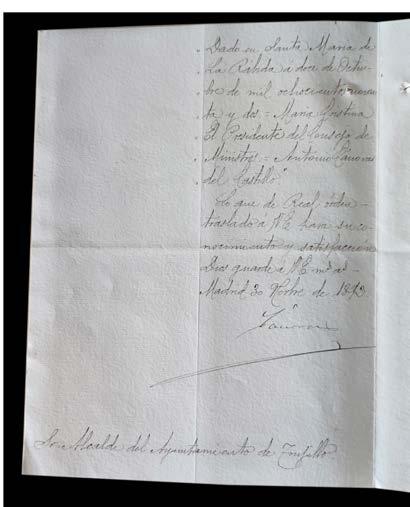 " Dado en Santa Maria de
" La Rábida á doce de Octu-
" bre de mil ochocientos noven
" ta y dos = Maria Cristina
" El Presidente del Consejo de
" Ministros = Antonio Cánovas
" del Castillo"
Lo que de Real orden
traslado á V.E. para su co
nocimiento y satisfaccion
Dios guarde á V.E. ms. as.
Madrid 30 de 1892
Cánovas
Sor. Alcalde del Ayuntamiento de Trujillo